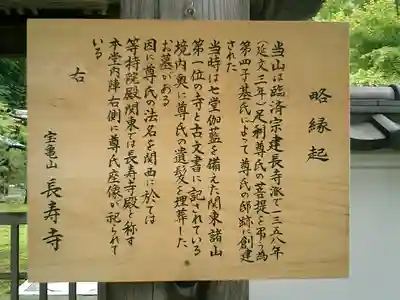 略縁起
当山は臨済宗建長寺派で一三五八年
(延文三年)足利尊氏の菩提を弔う為
第四子基氏によって尊氏の邸跡に創建
された
当時は七堂伽藍を備えた関東諸山
第一位の寺と古文書に記されている
境内奥に尊氏の遺髪を埋葬した
お墓がある
因に尊氏の法名を関西に於ては
等持院殿関東では長寿寺殿と称す
本堂内陣右側に尊氏座像が祀られて
いる
右
宝亀山 長寿寺